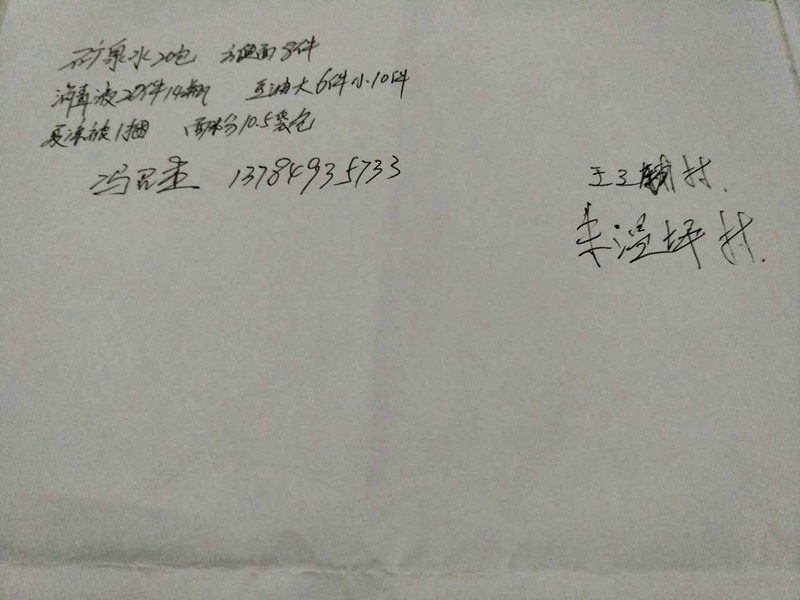 矿泉水20包 方便面8件
消毒液20件14瓶 豆油大6件小10件
夏凉被1捆 面粉10.5袋包
冯 13784935733
王 村.
朱 坪村.